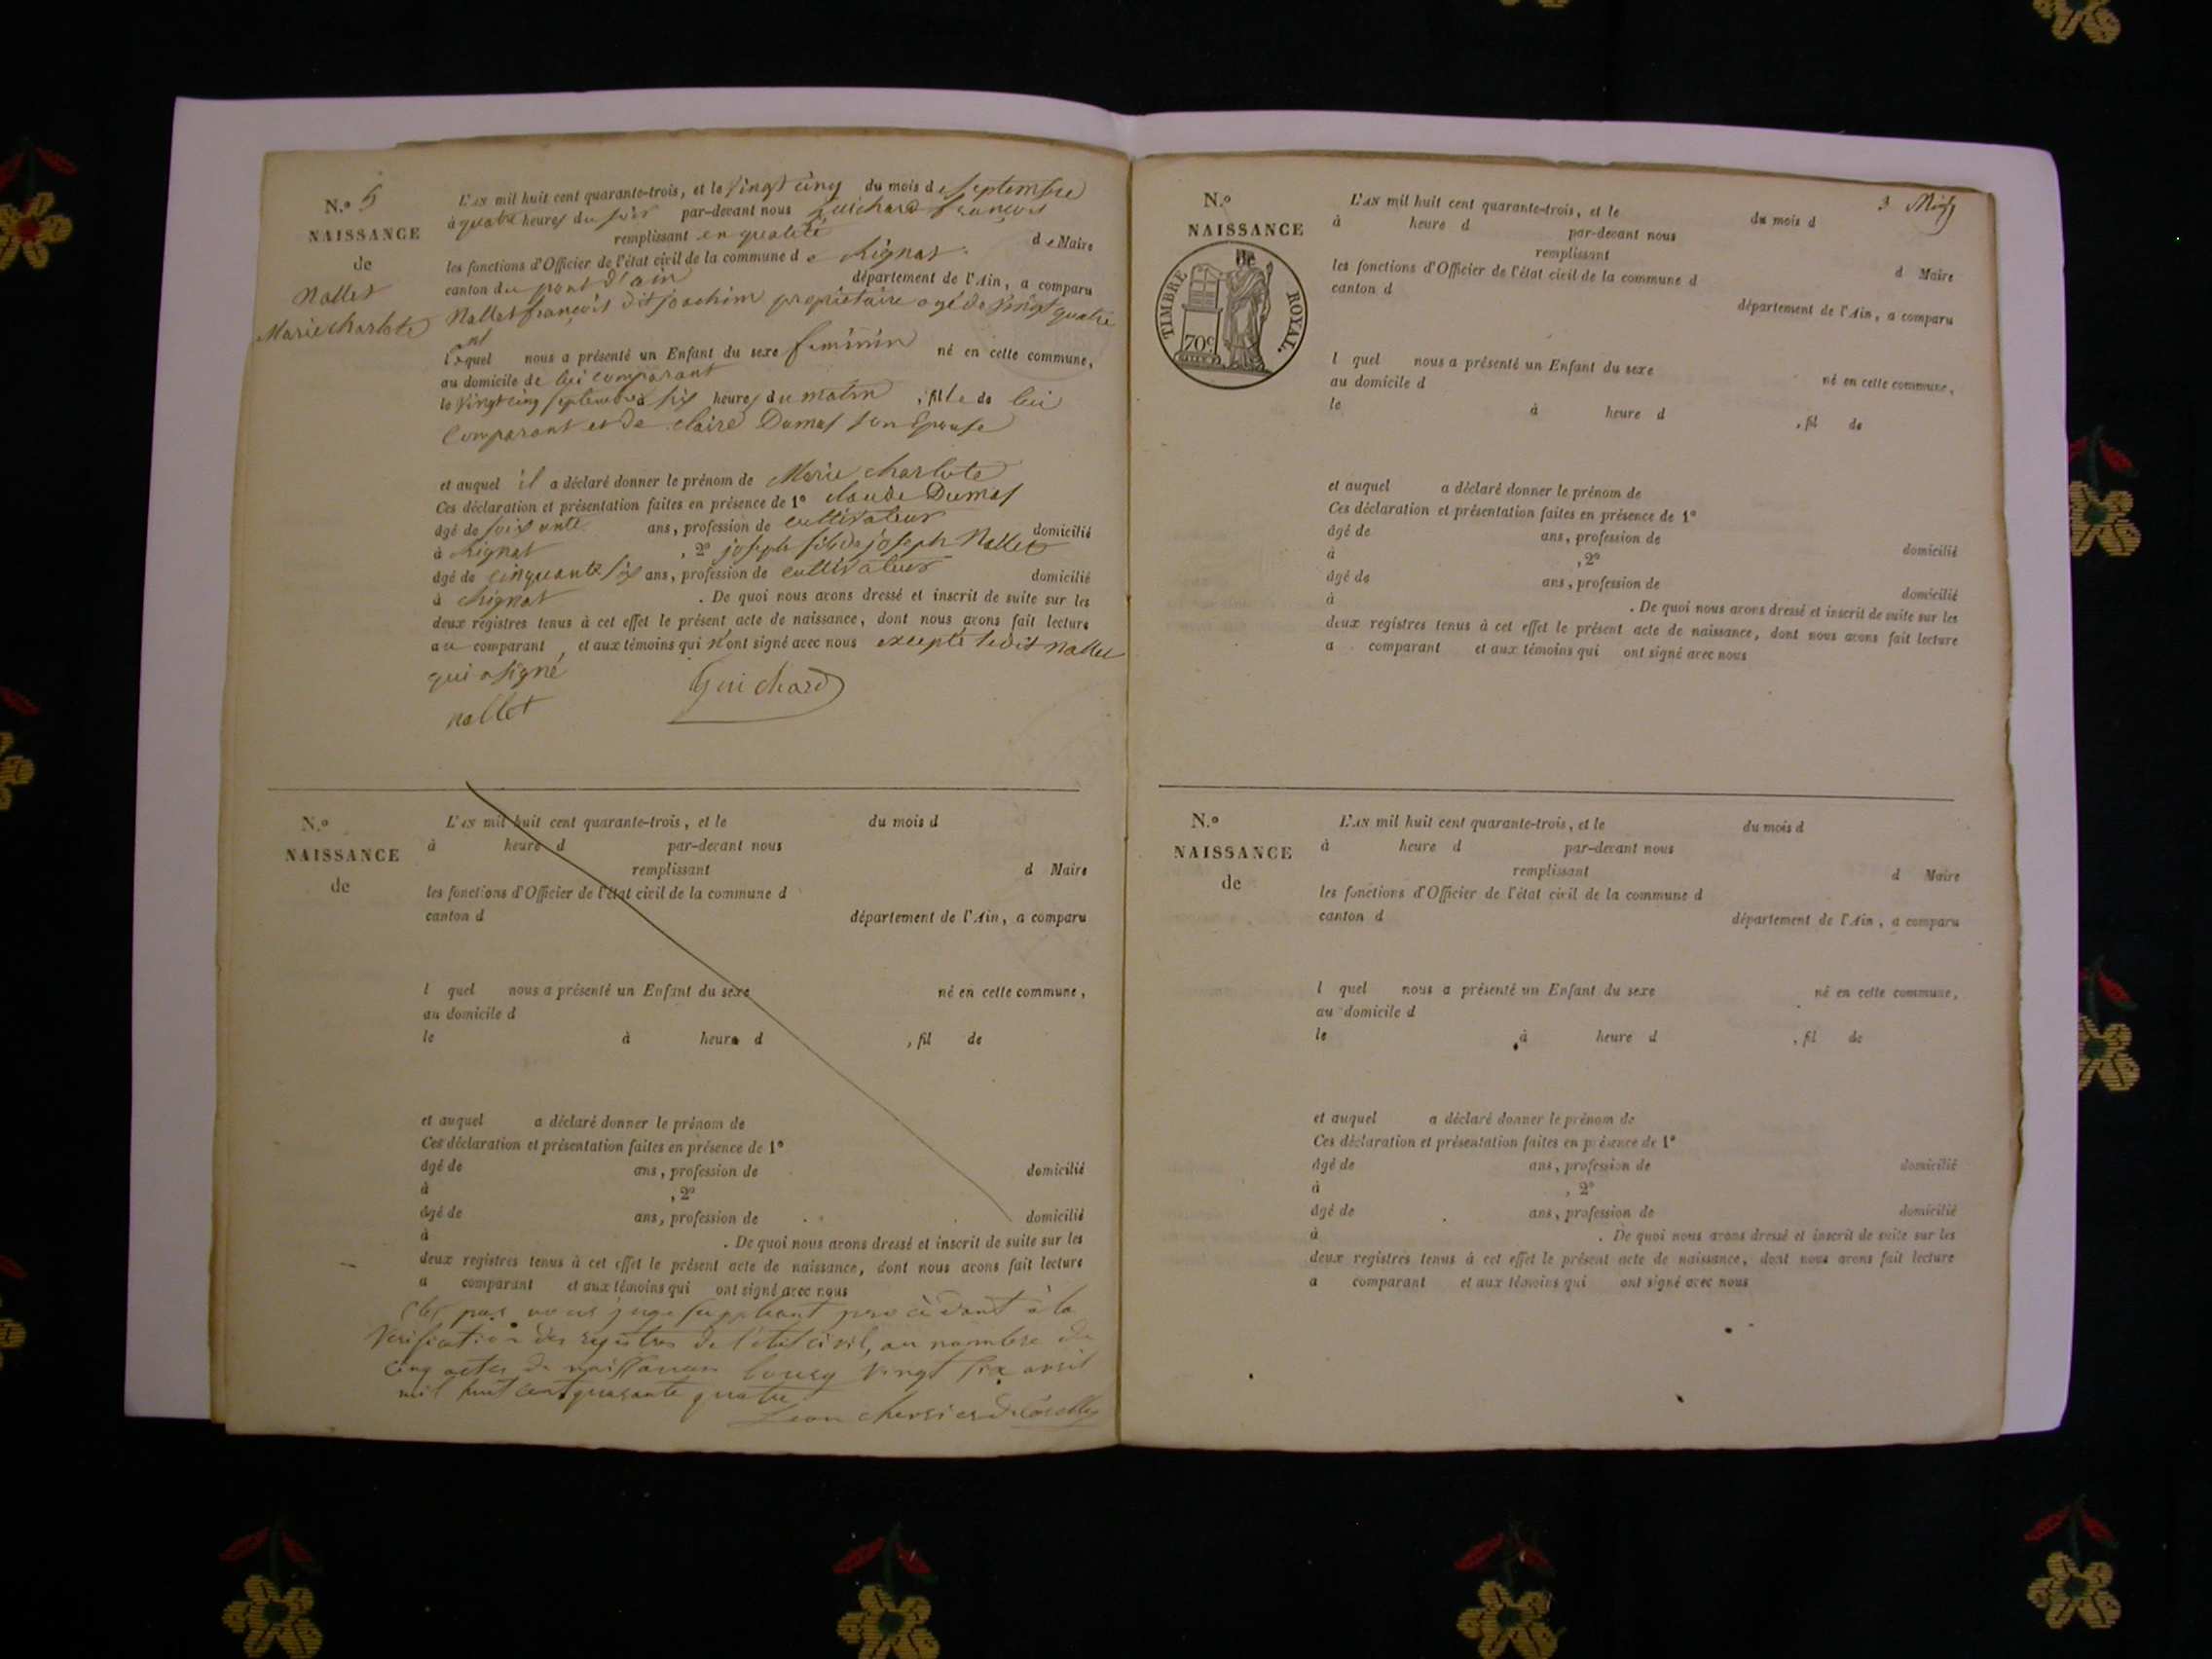 N.º 5
NAISSANCE
de
Nallet
Marie charlote
L'AN mil huit cent quarante-trois, et le vingt cinq du mois de septembre
à quatre heures du soir par-devant nous guichard françois
remplissant en qualité de Maire
les fonctions d'Officier de l'état civil de la commune de Rignat
canton du pont d'ain département de l'Ain, a comparu
Nallet françois dit joachim propriétaire agé de vingt quatre
ans
lequel nous a présenté un Enfant du sexe feminin né en cette commune,
au domicile de lui comparant
le vingt cinq septembre à six heures du matin, fille de lui
comparant et de claire Dumas son Epouse
et auquel il a déclaré donner le prénom de Marie charlote
Ces déclaration et présentation faites en présence de 1º claude Dumas
âgé de soixante ans, profession de cultivateur domicilié
à Rignat, 2º joseph fils de joseph Nallet
âgé de cinquante six ans, profession de cultivateur domicilié
à Rignat. De quoi nous avons dressé et inscrit de suite sur les
deux registres tenus à cet effet le présent acte de naissance, dont nous avons fait lecture
au comparant, et aux témoins qui n'ont signé avec nous excepté ledit nallet
qui a signé
nallet Guichard
N.º
NAISSANCE
de
L'AN mil huit cent quarante-trois, et le du mois d
à heure d par-devant nous
remplissant d Maire
les fonctions d'Officier de l'état civil de la commune d
canton d département de l'Ain, a comparu
l quel nous a présenté un Enfant du sexe né en cette commune,
au domicile d
le à heure d , fil de
et auquel a déclaré donner le prénom de
Ces déclaration et présentation faites en présence de 1º
âgé de ans, profession de domicilié
à , 2º
âgé de ans, profession de domicilié
à . De quoi nous avons dressé et inscrit de suite sur les
deux registres tenus à cet effet le présent acte de naissance, dont nous avons fait lecture
a comparant et aux témoins qui ont signé avec nous
par nous juge suppléant procédant à la
Verification des registres de l'état civil, au nombre de
cinq actes de naissances bourg vingt six avril
mil huit cent quarante quatre
N.º
NAISSANCE
TIMBRE ROYAL.
70c
L'AN mil huit cent quarante-trois, et le du mois d
à heure d par-devant nous
remplissant d Maire
les fonctions d'Officier de l'état civil de la commune d
canton d département de l'Ain, a comparu
l quel nous a présenté un Enfant du sexe né en cette commune,
au domicile d
le à heure d , fil de
et auquel a déclaré donner le prénom de
Ces déclaration et présentation faites en présence de 1º
âgé de ans, profession de domicilié
à , 2º
âgé de ans, profession de domicilié
à . De quoi nous avons dressé et inscrit de suite sur les
deux registres tenus à cet effet le présent acte de naissance, dont nous avons fait lecture
a comparant et aux témoins qui ont signé avec nous
N.º
NAISSANCE
de
L'AN mil huit cent quarante-trois, et le du mois d
à heure d par-devant nous
remplissant d Maire
les fonctions d'Officier de l'état civil de la commune d
canton d département de l'Ain, a comparu
l quel nous a présenté un Enfant du sexe né en cette commune,
au domicile d
le à heure d , fil de
et auquel a déclaré donner le prénom de
Ces déclaration et présentation faites en présence de 1º
âgé de ans, profession de domicilié
à , 2º
âgé de ans, profession de domicilié
à . De quoi nous avons dressé et inscrit de suite sur les
deux registres tenus à cet effet le présent acte de naissance, dont nous avons fait lecture
a comparant et aux témoins qui ont signé avec nous